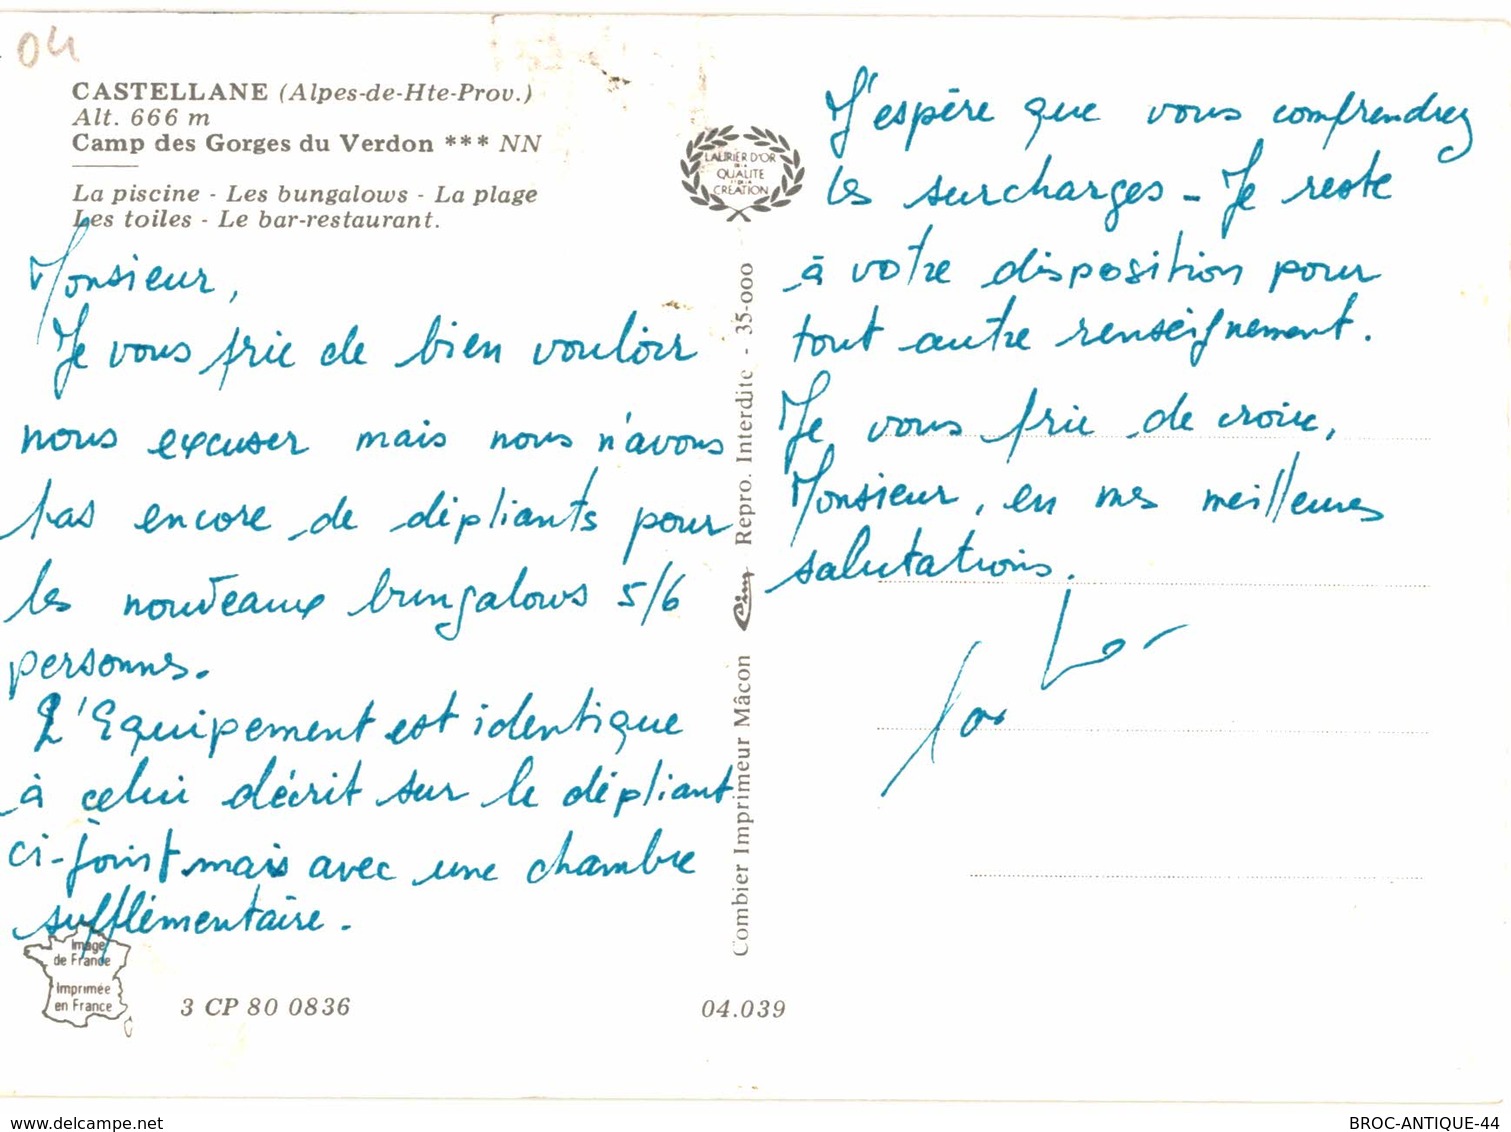 04
CASTELLANE (Alpes-de-Hte-Prov.)
Alt. 666 m
Camp des Gorges du Verdon *** NN
La piscine - Les bungalows - La plage
Les toiles - Le bar-restaurant.
Monsieur,
Je vous prie de bien vouloir
nous excuser mais nous n'avons
pas encore de dépliants pour
les nouveaux bungalows 5/6
personnes.
L'Equipement est identique
à celui décrit sur le dépliant
ci-joint mais avec une chambre
supplémentaire.
Image
de France
Imprimée
en France
3 CP 80 0836
04.039
LAURIER D'OR
DE LA
QUALITE
ET DE LA
CREATION
Combier Imprimeur Mâcon Cim Repro. Interdite - 35-000
J'espère que vous comprendrez
les surcharges - Je reste
à votre disposition pour
tout autre renseignement.
Je vous prie de croire,
Monsieur, en mes meilleures
salutations.
delcampe.net
BROC-ANTIQUE-44